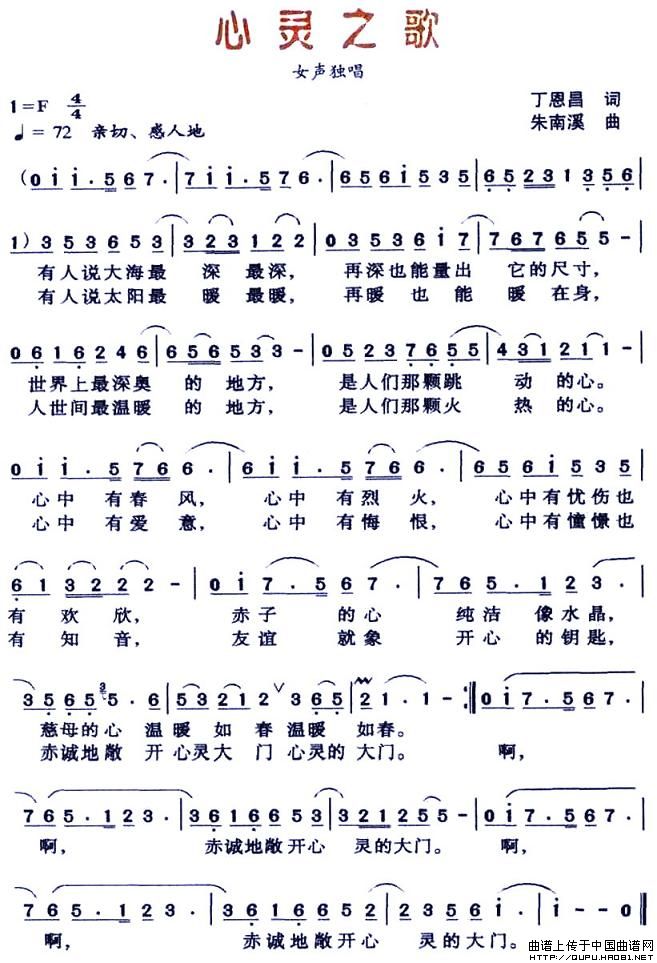 心灵之歌
女声独唱
1=F 4/4 丁恩昌 词
♩= 72 亲切、感人地 朱南溪 曲
(0 i i . 5 6 7 . | 7 i i . 5 7 6 . | 6 5 6 i 5 3 5 | 6 5 2 3 1 3 5 6
1) 3 5 3 6 5 3 | 3 2 3 1 2 2 | 0 3 5 3 6 i 7 | 7 6 7 6 5 5 - |
有人说大海最 深 最深， 再深也能量出 它的尺寸，
有人说太阳最 暖 最暖， 再暖 也 能 暖 在身，
0 6 1 6 2 4 6 | 6 5 6 5 3 3 - | 0 5 2 3 7 6 5 5 | 4 3 1 2 1 1 - |
世界上最深奥 的 地方， 是人们那颗跳 动 的心。
人世间最温暖 的 地方， 是人们那颗火 热 的心。
0 i i . 5 7 6 6 . | 0 i i . 5 7 6 6 . | 6 5 6 i 5 3 5 |
心中 有春 风， 心中 有烈 火， 心中有忧伤也
心中 有爱 意， 心中 有悔 恨， 心中有憧憬也
6 1 3 2 2 2 2 - | 0 i 7 . 5 6 7 | 7 6 5 . 1 2 3 |
有 欢欣， 赤子 的心 纯洁 像水晶，
有 知音， 友谊 就象 开心 的钥匙，
3 5 6 5 3 5 . 6 | 5 5 3 2 1 2 ∨ 3 6 5 | 2 1 . 1 - :‖ 0 i 7 . 5 6 7 . |
慈母的心 温暖 如 春温暖 如春。
赤诚地敞 开 心灵大 门 心灵的 大门。 啊，
7 6 5 . 1 2 3 . | 3 6 1 6 6 5 3 | 3 3 2 1 2 5 5 - | 0 i 7 . 5 6 7 . |
啊， 赤诚地敞开心 灵的大门。 啊，
7 6 5 . 1 2 3 | 3 6 1 6 1 6 5 | 6 5 6 1 2 | i - - 0 ‖
啊， 赤诚地敞开心 灵的大门。
曲谱上传于中国曲谱网
HTTP://QUPU.HAO81.NET